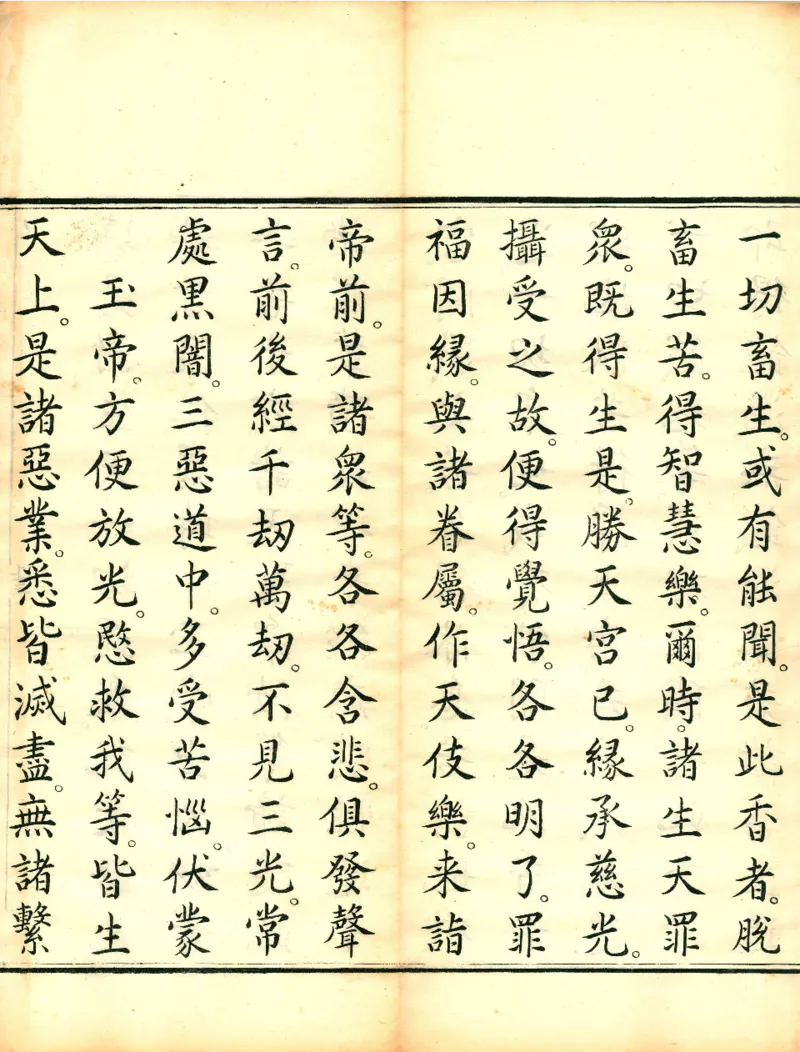 一切畜生。或有能聞。是此香者。脫
畜生苦。得智慧樂。爾時。諸生天罪
衆。既得生是。勝天宮已。緣承慈光。
攝受之故。便得覺悟。各各明了。罪
福因緣。與諸眷屬。作天伎樂。来詣
帝前。是諸衆等。各各含悲。俱發聲
言。前後經千劫萬劫。不見三光。常
處黑闇。三惡道中。多受苦惱。伏蒙
玉帝。方便放光。愍救我等。皆生
天上。是諸惡業。悉皆滅盡。無諸繫